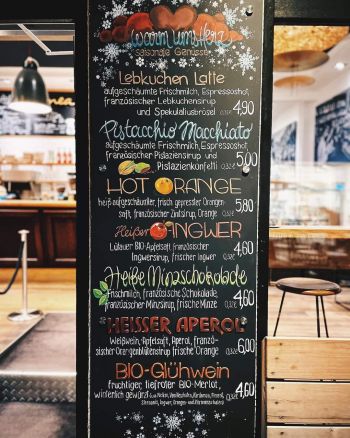 warm ums Herz
saisonale Genüsse
Lebkuchen Latte
aufgeschäumte Frischmilch, Espressoshot,
französischer Lebkuchensirup
und Spekulatiusbrösel 4,90
Pistacchio Macchiato
aufgeschäumte Frischmilch, Espressoshot,
französischer Pistaziensirup und
Pistazienkonfetti 5,00
HOT ORANGE
heiß aufgeschäumter, frisch gepresster Orangen-
saft, französischer Zimtsirup, Orange 5,80
Heißer INGWER
BIO-Apfelsaft, französischer
Ingwersirup, frischer Ingwer 4,60
Heiße Minzschokolade
Frischmilch, französische Schokolade,
französischer Minzsirup, frische Minze 4,60
HEISSER APEROL
Weißwein, Apfelsaft, Aperol, franzö-
sischer Orangenblütensirup, frische Orange 6,00
BIO-Glühwein
fruchtiger, tiefroter BIO-Merlot,
winterlich gewürzt 4,60